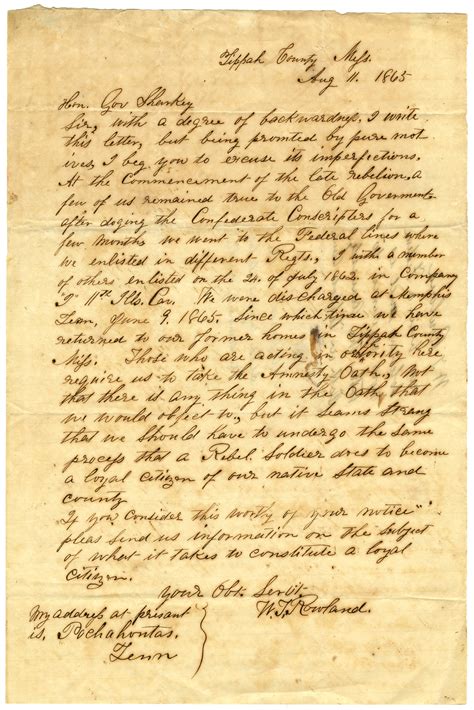 Tippah County Miss.
Aug 11. 1865
Hon. Gov Sharkey
Sir, with a degree of backwardness, I write
this letter, but being promted by pure mot
ives, I beg you to excuse its imperfections.
At the Commencement of the late rebelion, a
few of us remained true to the Old Goverment
after doging the Confederate Conscripters for a
few months we went to the Federal lines where
we enlisted in different Regts, I with a number
of others enlisted on the 24. of July 1862. in Company
11th Ills. Cav. We were discharged at Memphis
Tenn, June 9. 1865. Since which time we have
returned to our former homes in Tippah County
Miss. Those who are acting in othority here
require us to take the Amnesty Oath, Not
that there is any thing in the Oath that
we would object to, but it seams strang
that we should have to undergo the same
process that a Rebel Soldier does to become
a loyal citizen of our native State and
county
If you Consider this worthy of your notice
pleas send us information on the subject
of what it takes to constitute a loyal
citizen.
your Obt. Servt.
W. T. Rowland.
My address at presant
is, Pochahontas.
Tenn